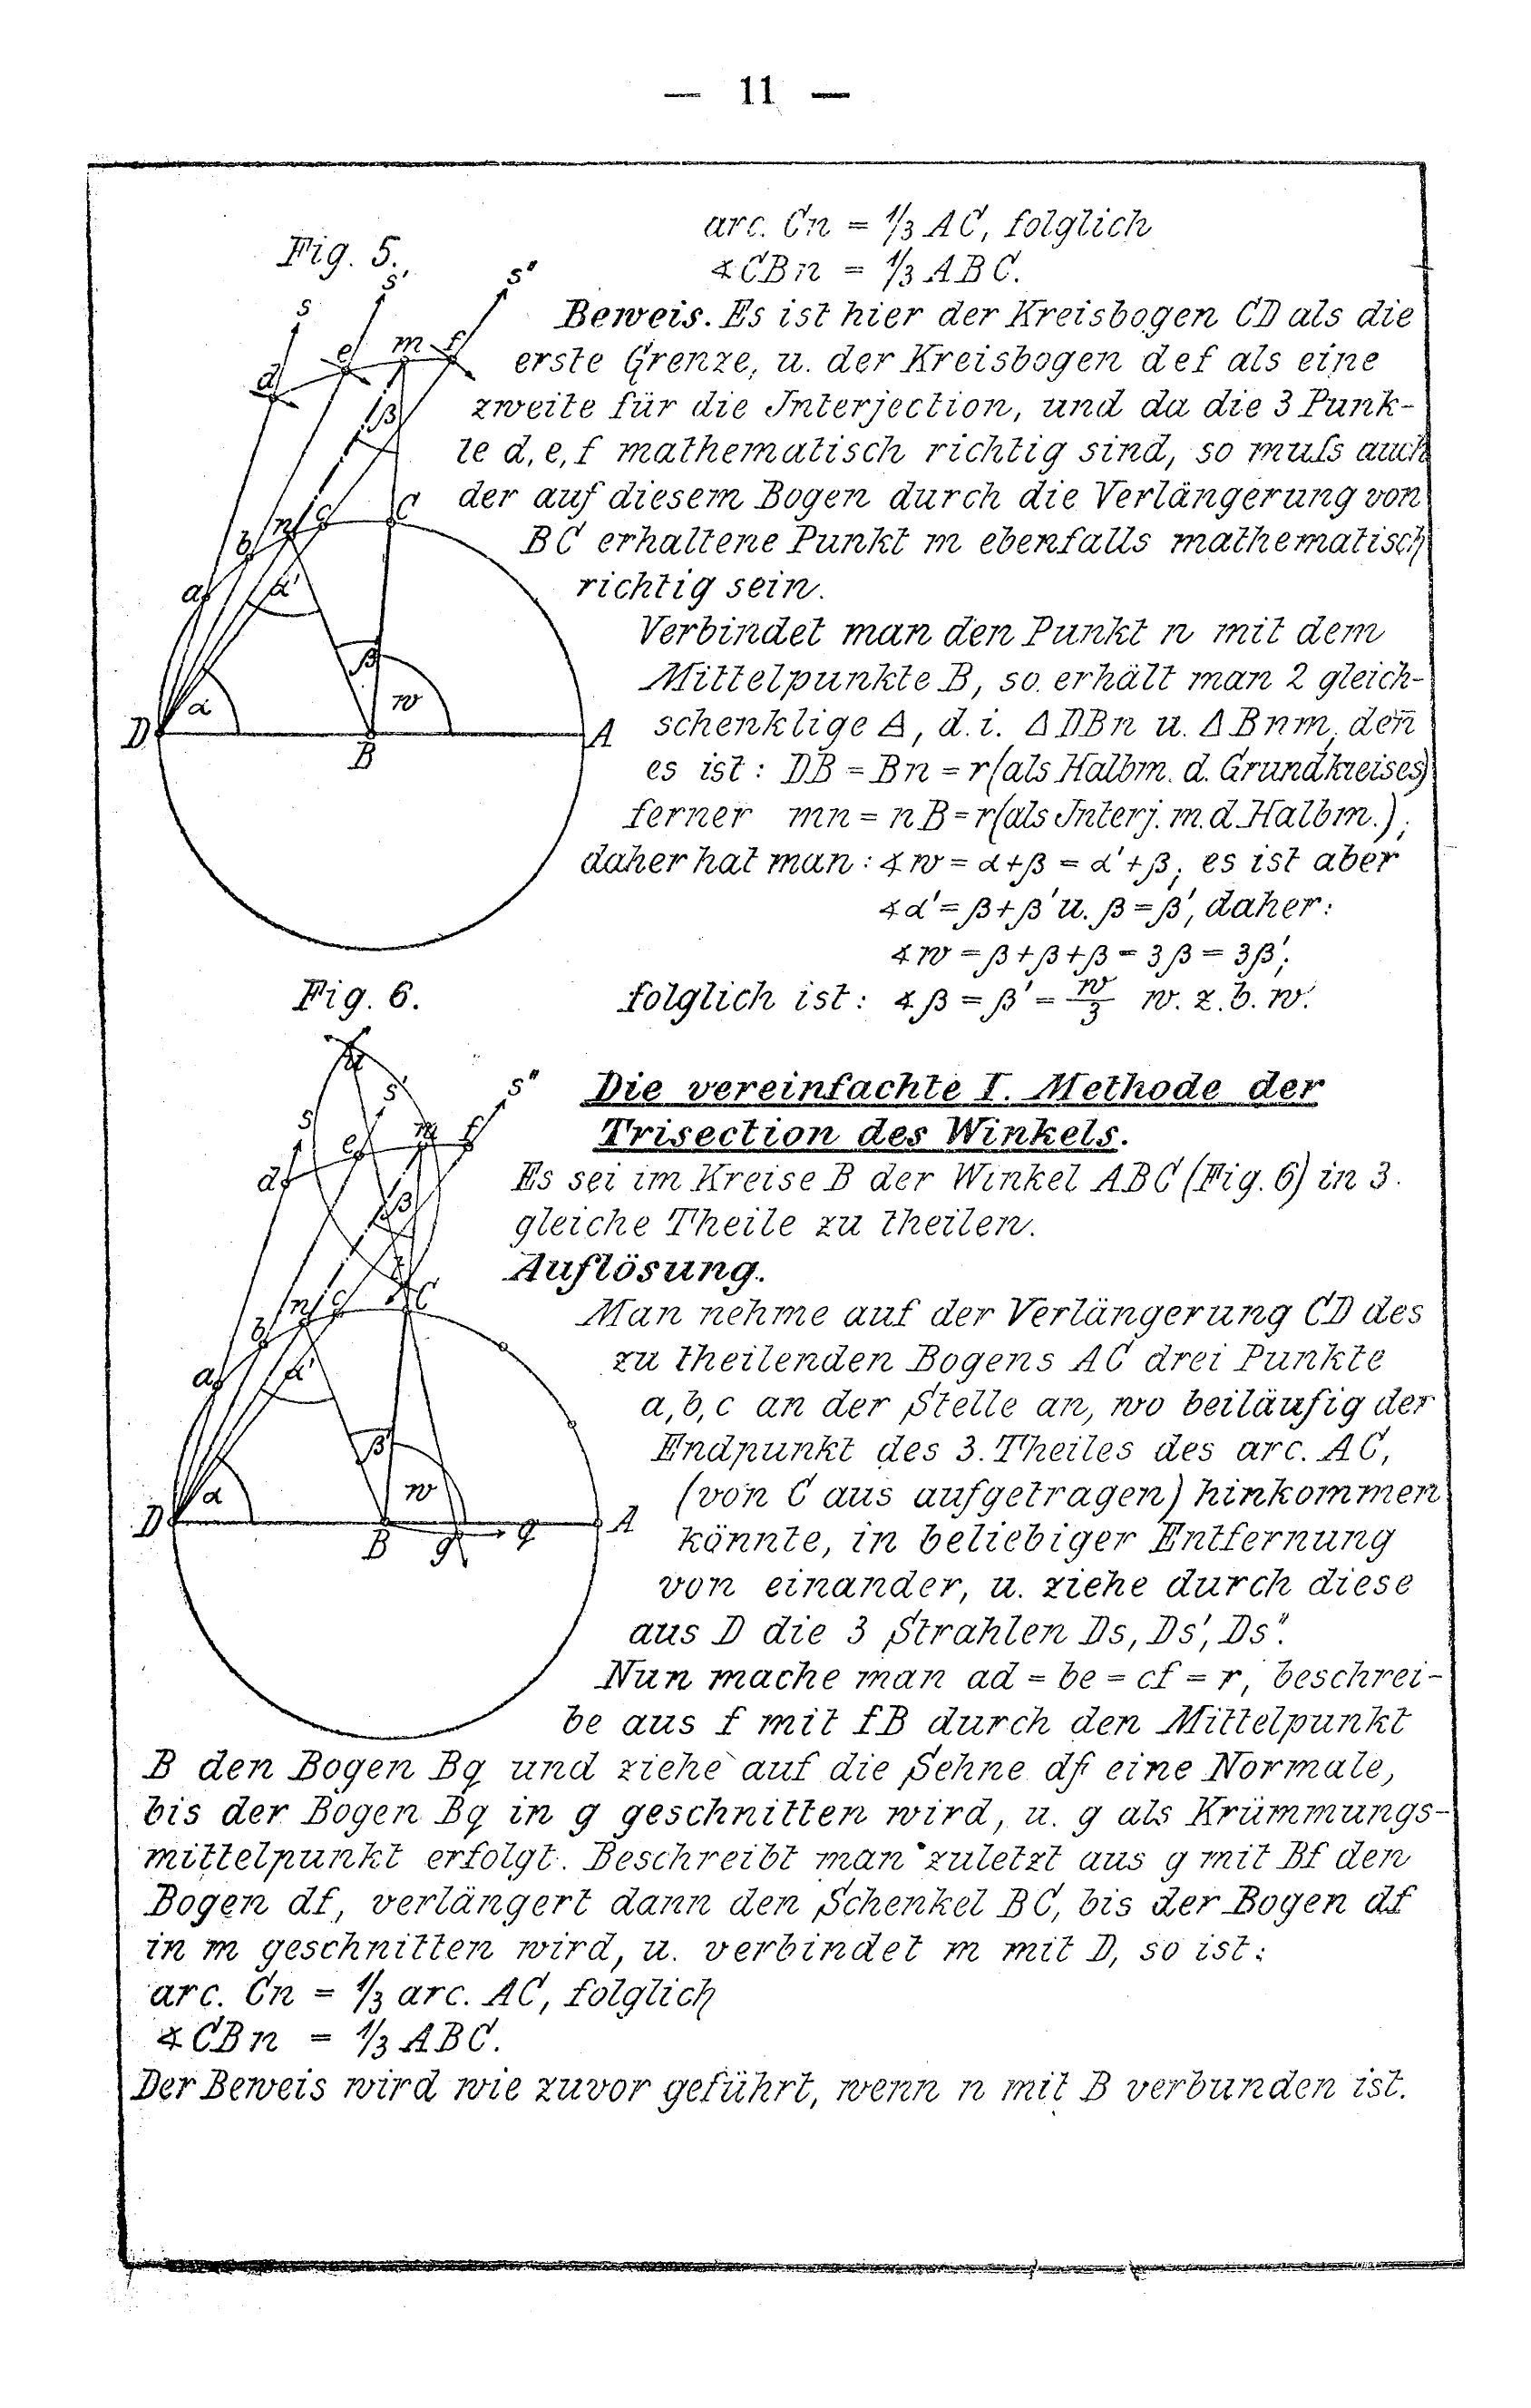 — 11 —
Fig. 5.
arc. Cn = 1/3 AC, folglich
∢CBn = 1/3 ABC.
Beweis. Es ist hier der Kreisbogen CD als die
erste Grenze, u. der Kreisbogen def als eine
zweite für die Interjection, und da die 3 Punk-
te d, e, f mathematisch richtig sind, so muſs auch
der auf diesem Bogen durch die Verlängerung von
BC erhaltene Punkt m ebenfalls mathematisch
richtig sein.
Verbindet man den Punkt n mit dem
Mittelpunkte B, so erhält man 2 gleich-
schenklige Δ, d. i. Δ DBn u. Δ Bnm, den̄
es ist: DB = Bn = r (als Halbm. d. Grundkreises)
ferner mn = nB = r (als Interj. m. d. Halbm.);
daher hat man: ∢ w = α + β = α' + β; es ist aber
∢ α' = β + β' u. β = β', daher:
∢ w = β + β + β = 3 β = 3β';
folglich ist: ∢ β = β' = w/3 w. z. b. w.
s
s'
s"
d
e
m
f
β
a
b
n
c
C
α'
β'
α
w
D
B
A
Fig. 6.
Die vereinfachte I. Methode der
Trisection des Winkels.
Es sei im Kreise B der Winkel ABC (Fig. 6) in 3
gleiche Theile zu theilen.
Auflösung.
Man nehme auf der Verlängerung CD des
zu theilenden Bogens AC drei Punkte
a, b, c an der Stelle an, wo beiläufig der
Endpunkt des 3. Theiles des arc. AC,
(von C aus aufgetragen) hinkommen
könnte, in beliebiger Entfernung
von einander, u. ziehe durch diese
aus D die 3 Strahlen Ds, Ds', Ds".
Nun mache man ad = be = cf = r, beschrei-
be aus f mit fB durch den Mittelpunkt
B den Bogen Bq und ziehe auf die Sehne df eine Normale,
bis der Bogen Bq in g geschnitten wird, u. g als Krümmungs-
mittelpunkt erfolgt. Beschreibt man zuletzt aus g mit Bf den
Bogen df, verlängert dann den Schenkel BC, bis der Bogen df
in m geschnitten wird, u. verbindet m mit D, so ist:
arc. Cn = 1/3 arc. AC, folglich
∢CBn = 1/3 ABC.
Der Beweis wird wie zuvor geführt, wenn n mit B verbunden ist.
s
s'
s"
d
e
m
f
β
a
b
n
c
C
α'
β'
α
w
D
B
g
q
A